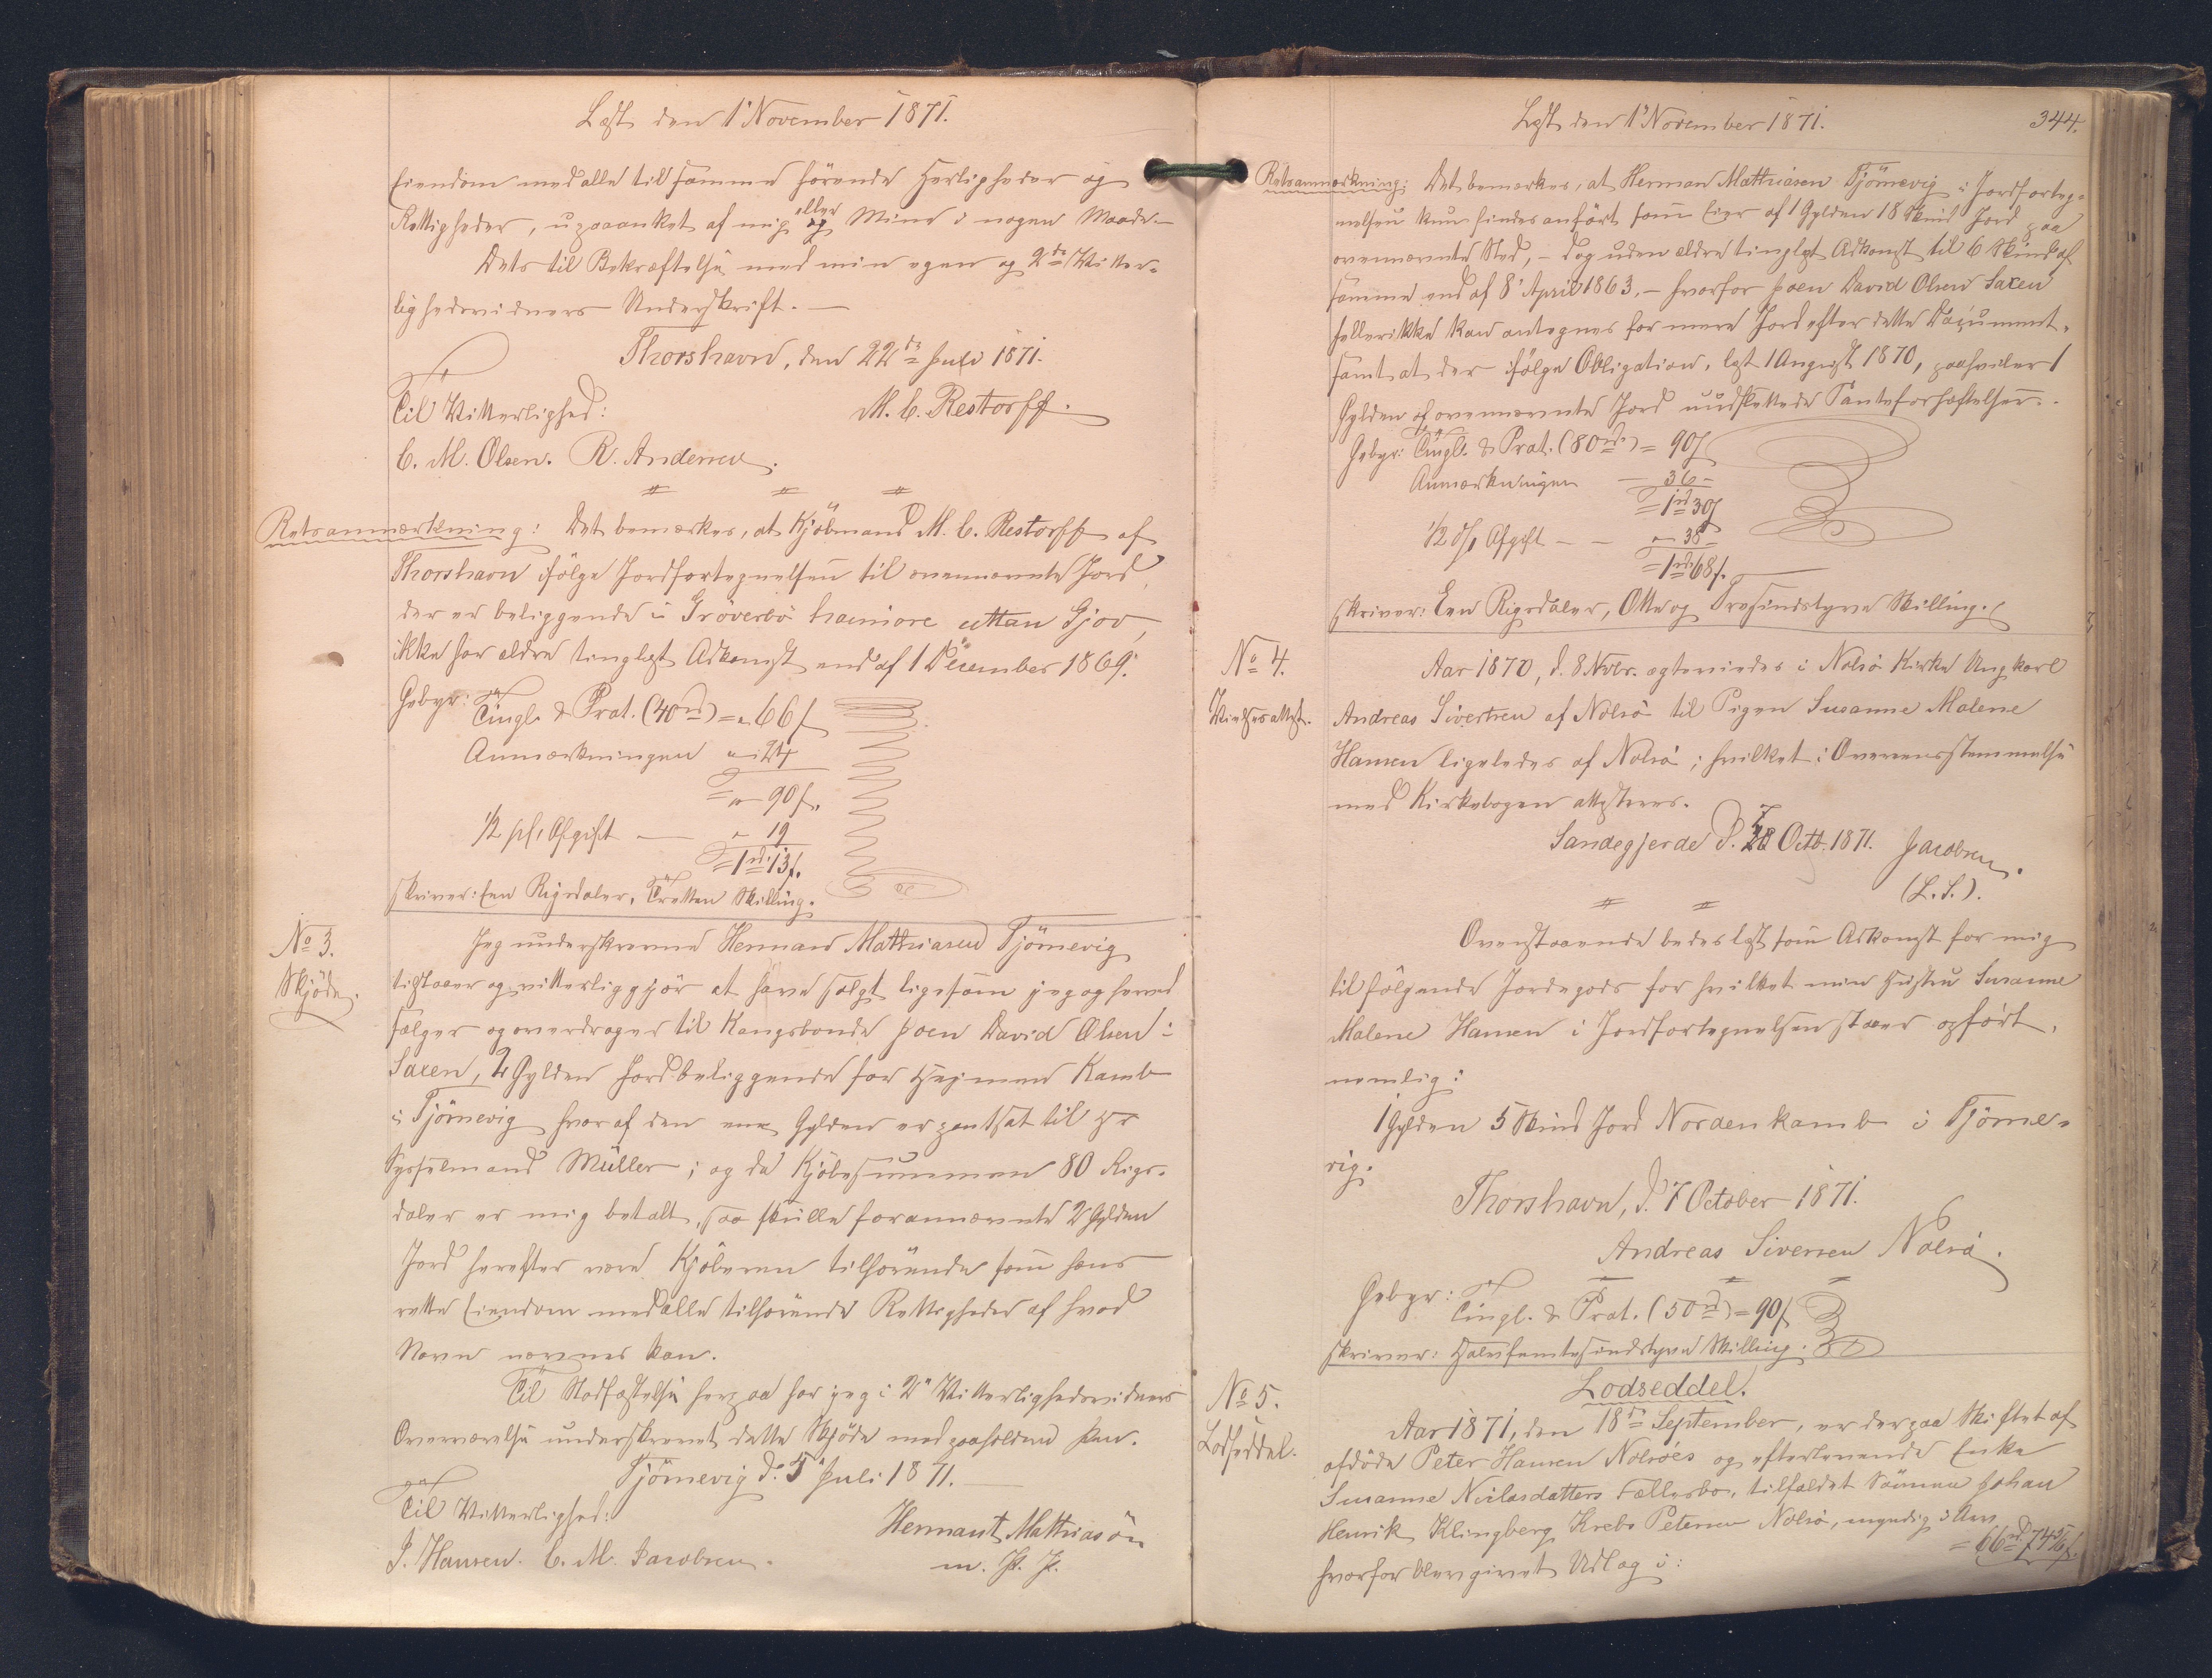 Læst den 1' November 1871.
Eiendom med alle til samme hörende Herligheder og
Rettigheder, upaaanket af mig eller Mine i nogen Maade.
Dets til Bekræftelse med min egen og 2de Vitter-
lighedsvidners Underskrift. —
Thorshavn, den 22de Juli 1871.
Til Vitterlighed: M. C. Restorff.
C. M. Olsen. R. Andersen.
Retsanmærkning: Det bemærkes, at Kjöbmand M. C. Restorff af
Thorshavn ifölge Jordfortegnelsen til ovennævnte Jord,
der er beliggende i Gröverbö haniore uttan Gjov,
ikke har ældre tinglæst Adkomst end af 1 December 1869.
Gebyr: Tingl. & Prot. (40rd) = „ 66 s
Anmærkningen „ 24
= „ 90 s.
1/2 pCt. Afgift — „ 19
= 1rd 13 s.
skriver: Een Rigsdaler, Tretten Skilling.
No 3.
Skjöde.
Jeg underskrevne Herman Mathiasen Tjörnevig
tilstaaer og vitterliggjör at have solgt ligesom jeg og herved
sælger og overdrager til Kongsbonde Joen David Olsen i
Saxen, 2 Gylden Jord beliggende for Hejmen Kamb
i Tjörnevig hvoraf den ene Gylden er pantsat til Hr
Sysselmand Müller; og da Kjöbesummen 80 Rigs-
daler er mig betalt, saa skulle forannævnte 2 Gylden
Jord herefter være Kjöberen tilhörende som hans
rette Eiendom med alle tilhörende Rettigheder af hvad
Navn nævnes kan.
Til Stadfæstelse herpaa har jeg i 2' Vitterlighedsvidners
Overværelse underskrevet dette Skjöde med paaholden Pen.
Tjörnevig d. 5 Juli 1871.
Til Vitterlighed:
Hermant Mathiasön
J. Hansen. C. M. Jacobsen.
m. p. P.
Læst den 1' November 1871.
344.
Retsanmærkning: Det bemærkes, at Herman Mathiasen Tjörnevig i Jordforteg-
nelsen kun findes anfört som Eier af 1 Gylden 18 Skind Jord paa
ovennævnte Sted, — dog uden ældre tinglæst Adkomst til 6 Skind af
samme end af 8' April 1863, — hvorfor Joen David Olsen Saxen
heller ikke kan antegnes for mere Jord efter dette Document,
samt at der ifölge Obligation, læst 1 August 1870, paahviler 1
Gylden af ovennævnte Jord uudslettede Panteforhæftelser.
Gebyr: Tingl. & Prot. (80rd) = 90 s
Anmærkningen — 36 -
= 1rd 30 s
1/2 % Afgift — — „ 38 -
= 1rd 68 s.
skriver: Een Rigsdaler, Otte og Tresindstyve Skilling.
No 4.
Vielsesattest.
Aar 1870, d. 8 Novbr. ægteviedes i Nolsö Kirke Ungkarl
Andreas Sivertsen af Nolsö til Pigen Susanne Malene
Hansen ligeledes af Nolsö; hvilket i Overensstemmelse
med Kirkebogen attesteres.
Sandegjerde d. Octb. 1871. Jacobsen.
(L. S.).
Ovenstaaende bedes læst som Adkomst for mig
til fölgende Jordegods for hvilket min Hustru Susanne
Malene Hansen i Jordfortegnelsen staaer opfört,
nemlig:
1 Gylden 5 Skind Jord Nordenkamb i Tjörne-
vig.
Thorshavn, d. 7 October 1871.
Andreas Siversen Nolsö.
Gebyr: Tingl. & Prot. (50rd) = 90 s
skriver: Halvfemtesindstyve Skilling.
No 5.
Lodseddel.
Lodseddel.
Aar 1871, den 18de September, er der paa Skiftet af
afdöde Peter Hansen Nolsöes og efterlevende Enke
Susanne Niclasdatters Fællesbo, tilfaldet Sönnen Johan
Henrik Klingberg Krebs Petersen Nolsö, myndig i Arv
= 66rd 74 s.
hvorfor blev givet Udlag i: